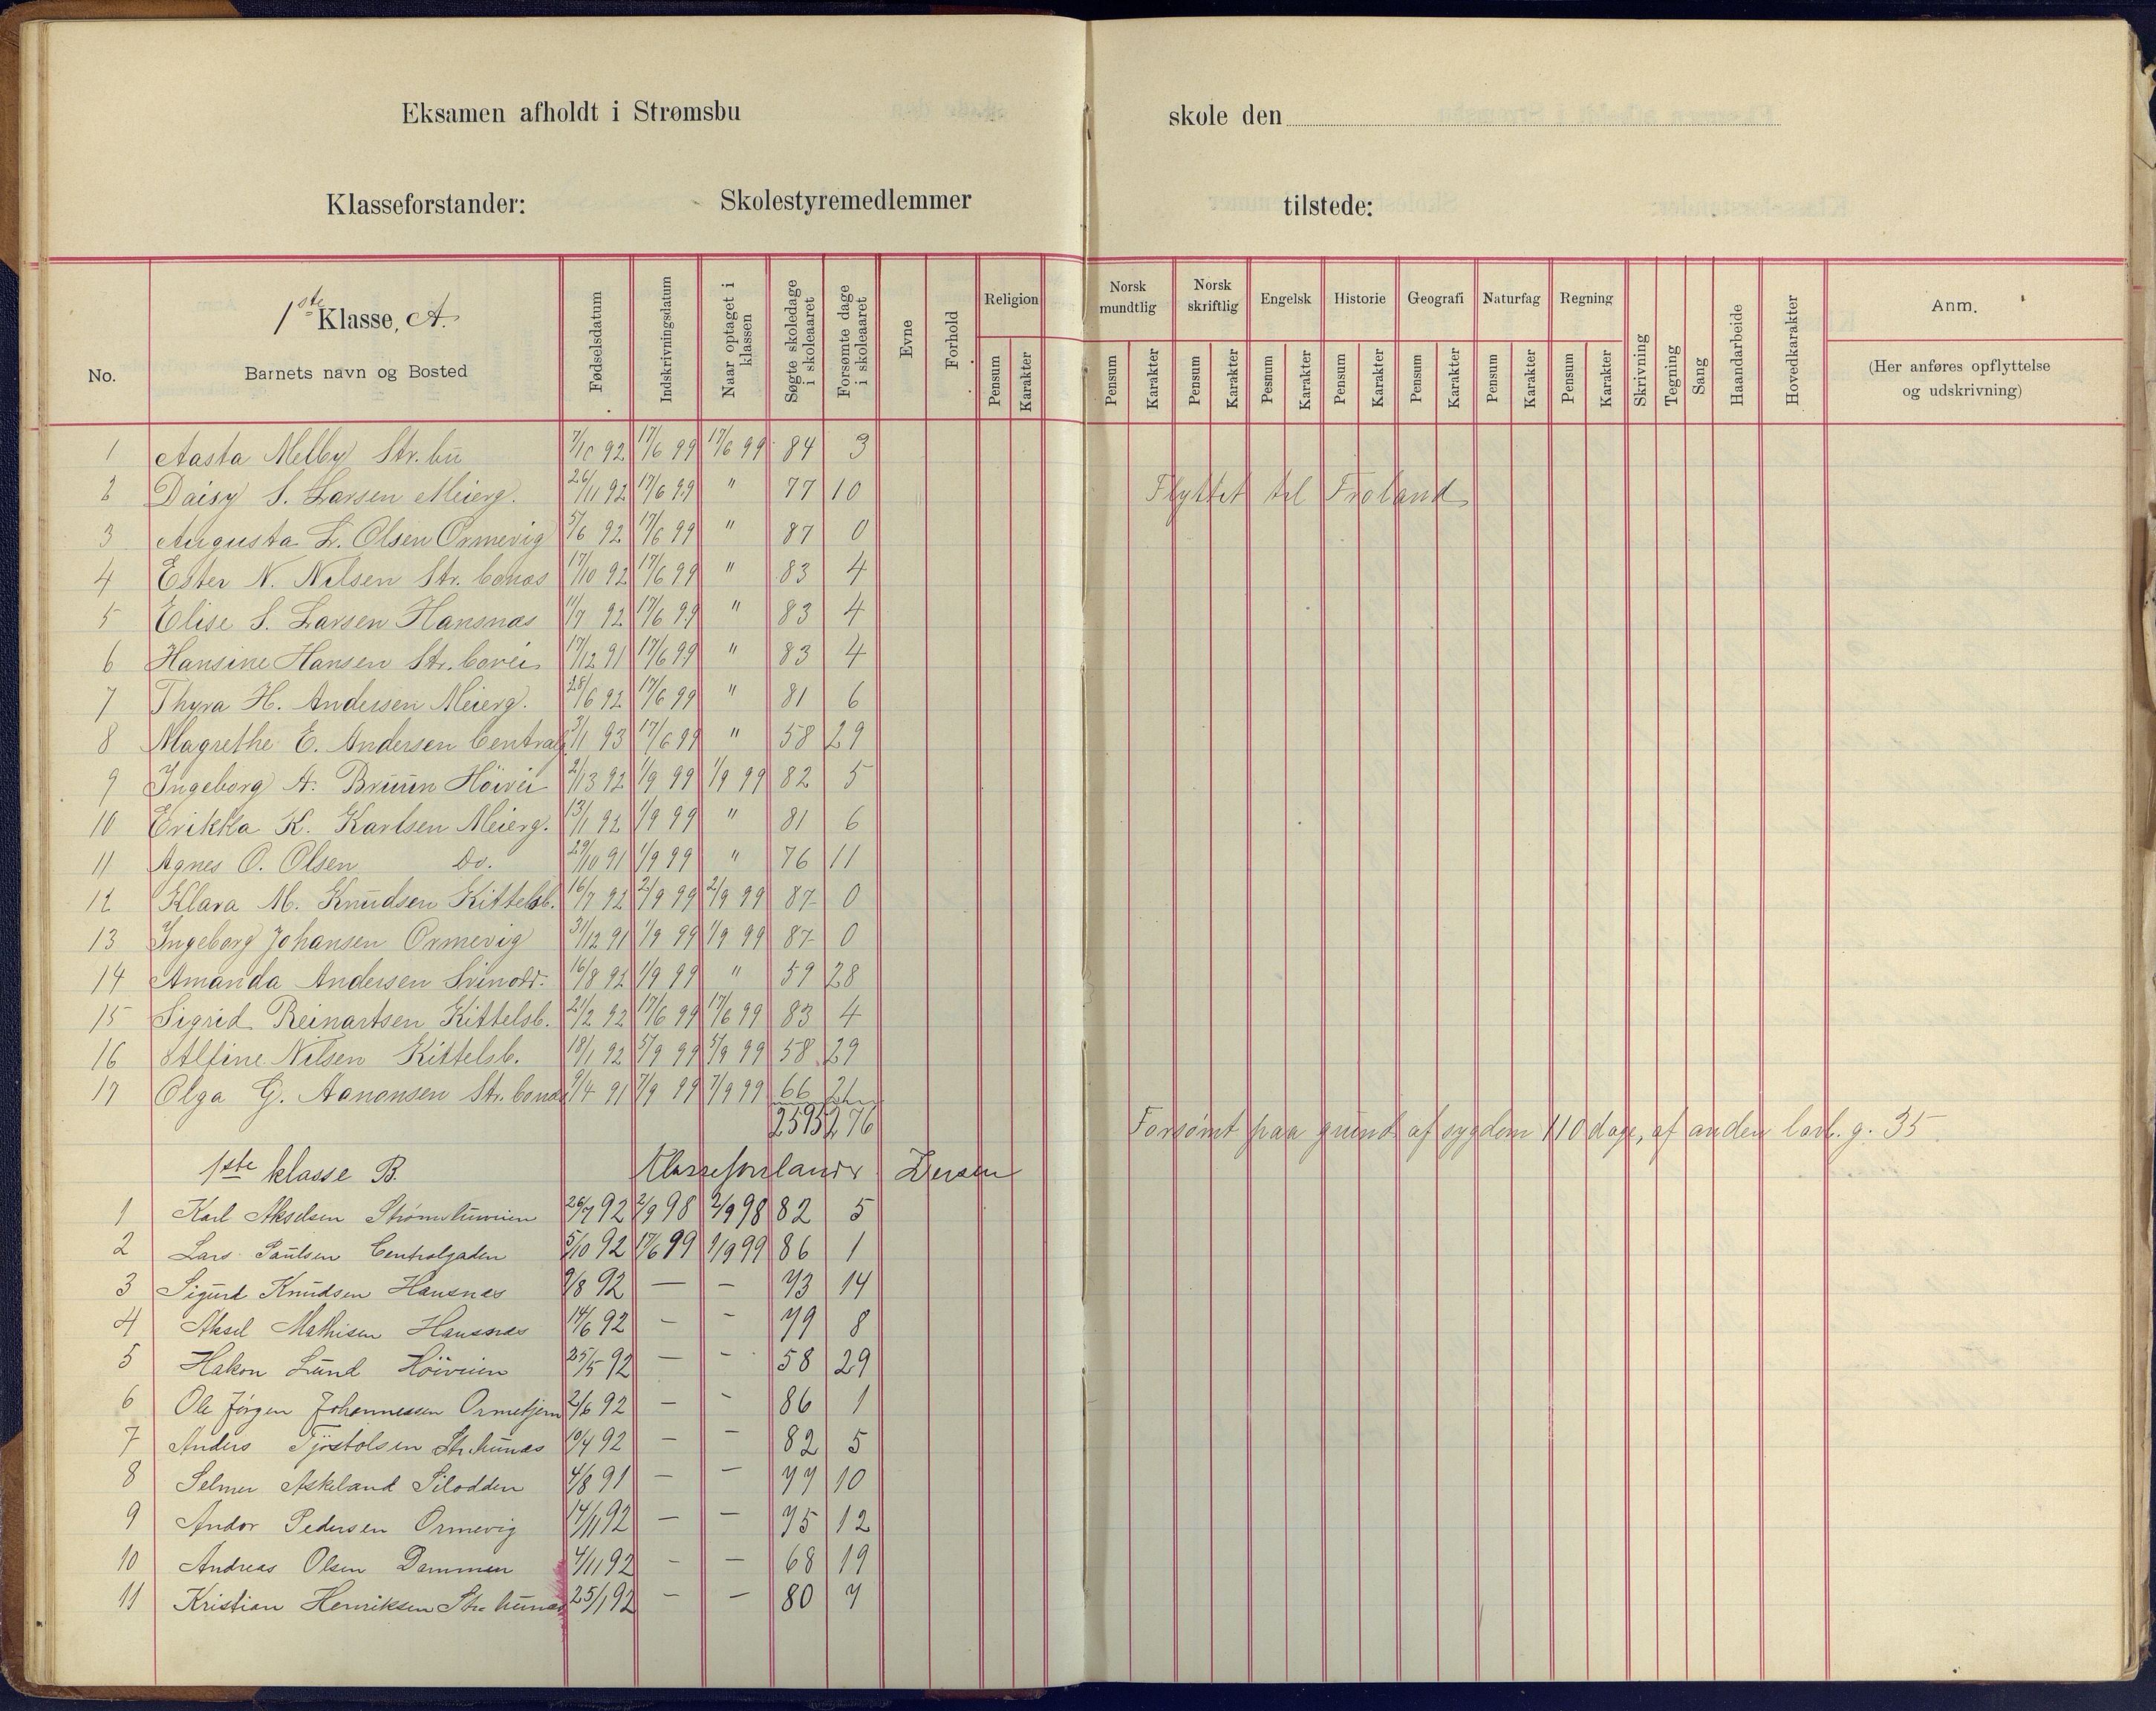 Eksamen afholdt i Strømsbu skole den
Klasseforstander: Skolestyremedlemmer tilstede:
1ste Klasse, A.
No. Barnets navn og Bosted Fødselsdatum Indskrivningsdatum Naar optaget i klassen Søgte skoledage i skoleaaret Forsømte dage i skoleaaret Evne Forhold Religion Pensum Karakter Norsk mundtlig Pensum Karakter Norsk skriftlig Pensum Karakter Engelsk Pesnum Karakter Historie Pensum Karakter Geografi Pensum Karakter Naturfag Pensum Karakter Regning Pensum Karakter Skrivning Tegning Sang Haandarbeide Hovedkarakter Anm. (Her anføres opflyttelse og udskrivning)
1 Aasta Melby Str. bu 7/10 92 17/6 99 17/6 99 84 3
2 Daisy S. Larsen Meierg. 26/11 92 17/6 99 " 77 10 Flyttet til Froland
3 Augusta L. Olsen Ormevig 5/6 92 17/6 99 " 87 0
4 Ester N. Nilsen Str. bonæs 17/10 92 17/6 99 " 83 4
5 Elise S. Larsen Hansnæs 11/7 92 17/6 99 " 83 4
6 Hansine Hansen Str. bovei 17/12 91 17/6 99 " 83 4
7 Thyra H. Andersen Meierg. 28/6 92 17/6 99 " 81 6
8 Magrethe E. Andersen Centralg. 3/1 93 17/6 99 " 58 29
9 Ingeborg A. Bruun Høivei 2/13 92 1/9 99 1/9 99 82 5
10 Erikka K. Karlsen Meierg. 13/1 92 1/9 99 " 81 6
11 Agnes O. Olsen Do. 29/10 91 1/9 99 " 76 11
12 Klara M. Knudsen Kittelsb. 16/7 92 2/9 99 2/9 99 87 0
13 Ingeborg Johansen Ormevig 31/12 91 1/9 99 1/9 99 87 0
14 Amanda Andersen 16/8 92 1/9 99 " 59 28
15 Sigrid Reinartsen Kittelsb. 21/2 92 17/6 99 17/6 99 83 4
16 Alfine Nilsen Kittelsb. 18/1 92 5/9 99 5/9 99 58 29
17 Olga G. Aanonsen Str. bonæs 9/4 91 7/9 99 7/9 99 66 21
2595 276 Forsømt paa grund af sygdom 110 dage, af anden lovl. g. 35.
1ste klasse B. Klasseforstander
1 Karl Akselsen Strømsbuveien 26/7 92 2/9 98 2/9 98 82 5
2 Lars Paulsen Centralgaden 5/10 92 17/6 99 1/9 99 86 1
3 Sigurd Knudsen Hansnæs 9/8 92 — — 73 14
4 Aksel Mathisen Hansnæs 14/6 92 — — 79 8
5 Hakon Lund Høiveien 25/5 92 — — 58 29
6 Ole Jørgen Johannessen Ormetjern 2/6 92 — — 86 1
7 Anders Tjøstolsen Str. bunæs 10/4 92 — — 82 5
8 Selmer Askeland Silodden 4/8 91 — — 77 10
9 Andor Pedersen Ormevig 14/11 92 — — 75 12
10 Andreas Olsen Dammen 4/11 92 — — 68 19
11 Kristian Henriksen Str. bunæs 25/1 92 — — 80 7